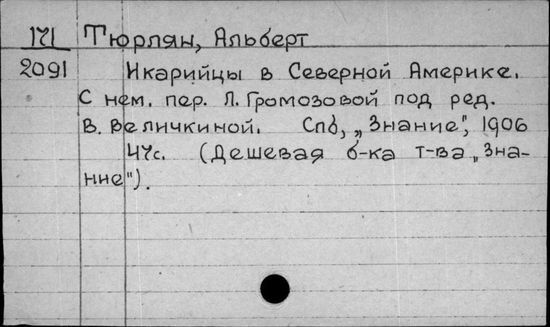 171 Тюрлян, Альберт
2091 Икарийцы в Северной Америке.
С нем. пер. Л. Громозовой под ред.
В. Величкиной. Спб, „Знание", 1906
47с. (Дешевая б-ка т-ва „Зна-
ние").